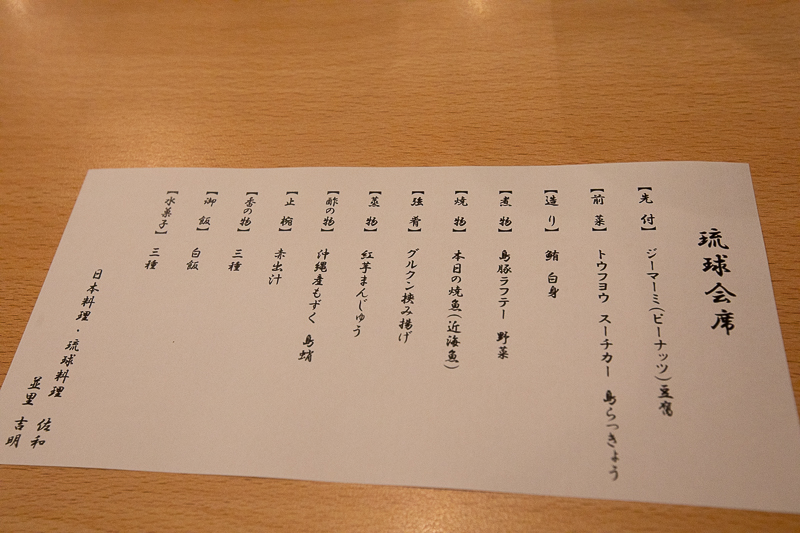 琉球会席
【先付】 ジーマーミ(ピーナッツ)豆腐
【前菜】 トウフヨウ スーチカー 島らっきょう
【造り】 鮪 白身
【煮物】 島豚ラフテー 野菜
【焼物】 本日の焼魚(近海魚)
【強肴】 グルクン挟み揚げ
【蒸物】 紅芋まんじゅう
【酢の物】 沖縄産もずく 島蛸
【止椀】 赤出汁
【香の物】 三種
【御飯】 白飯
【水菓子】 三種
日本料理・琉球料理 佐和
並里 吉明